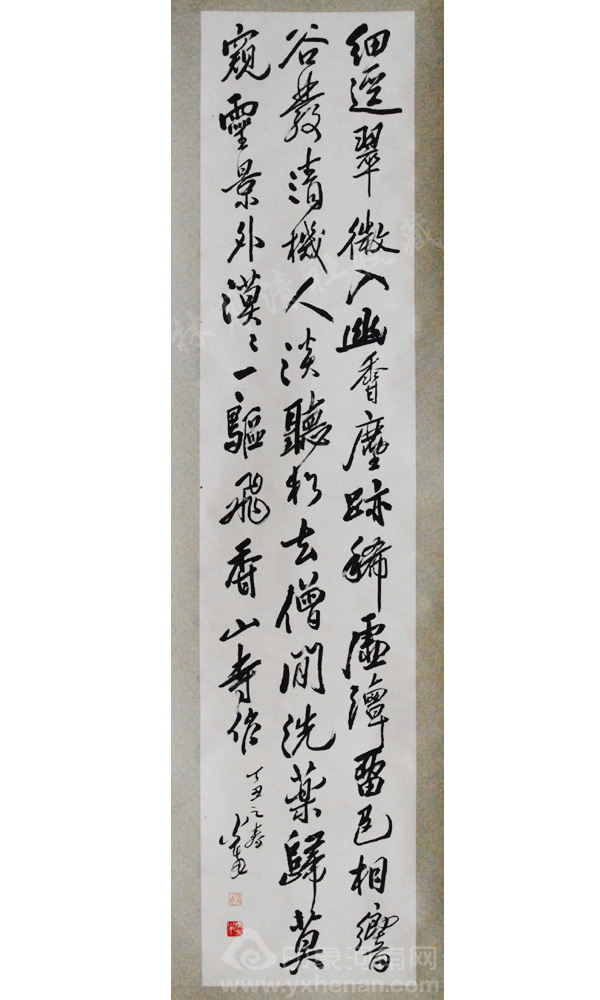 細逕翠微入幽香塵跡稀虛潭留色相響
谷發清機人淡聽松去僧閒洗藥歸莫
窺靈景外漠〻一驅飛香山寺作
丁丑之春
印象河南网
www.yxhenan.com